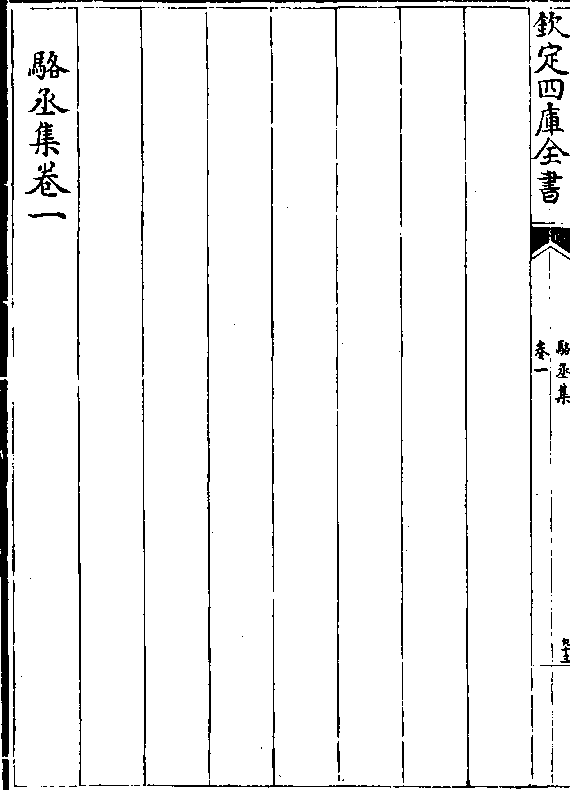 欽定四庫全書
駱丞集
卷一
駱丞集卷一